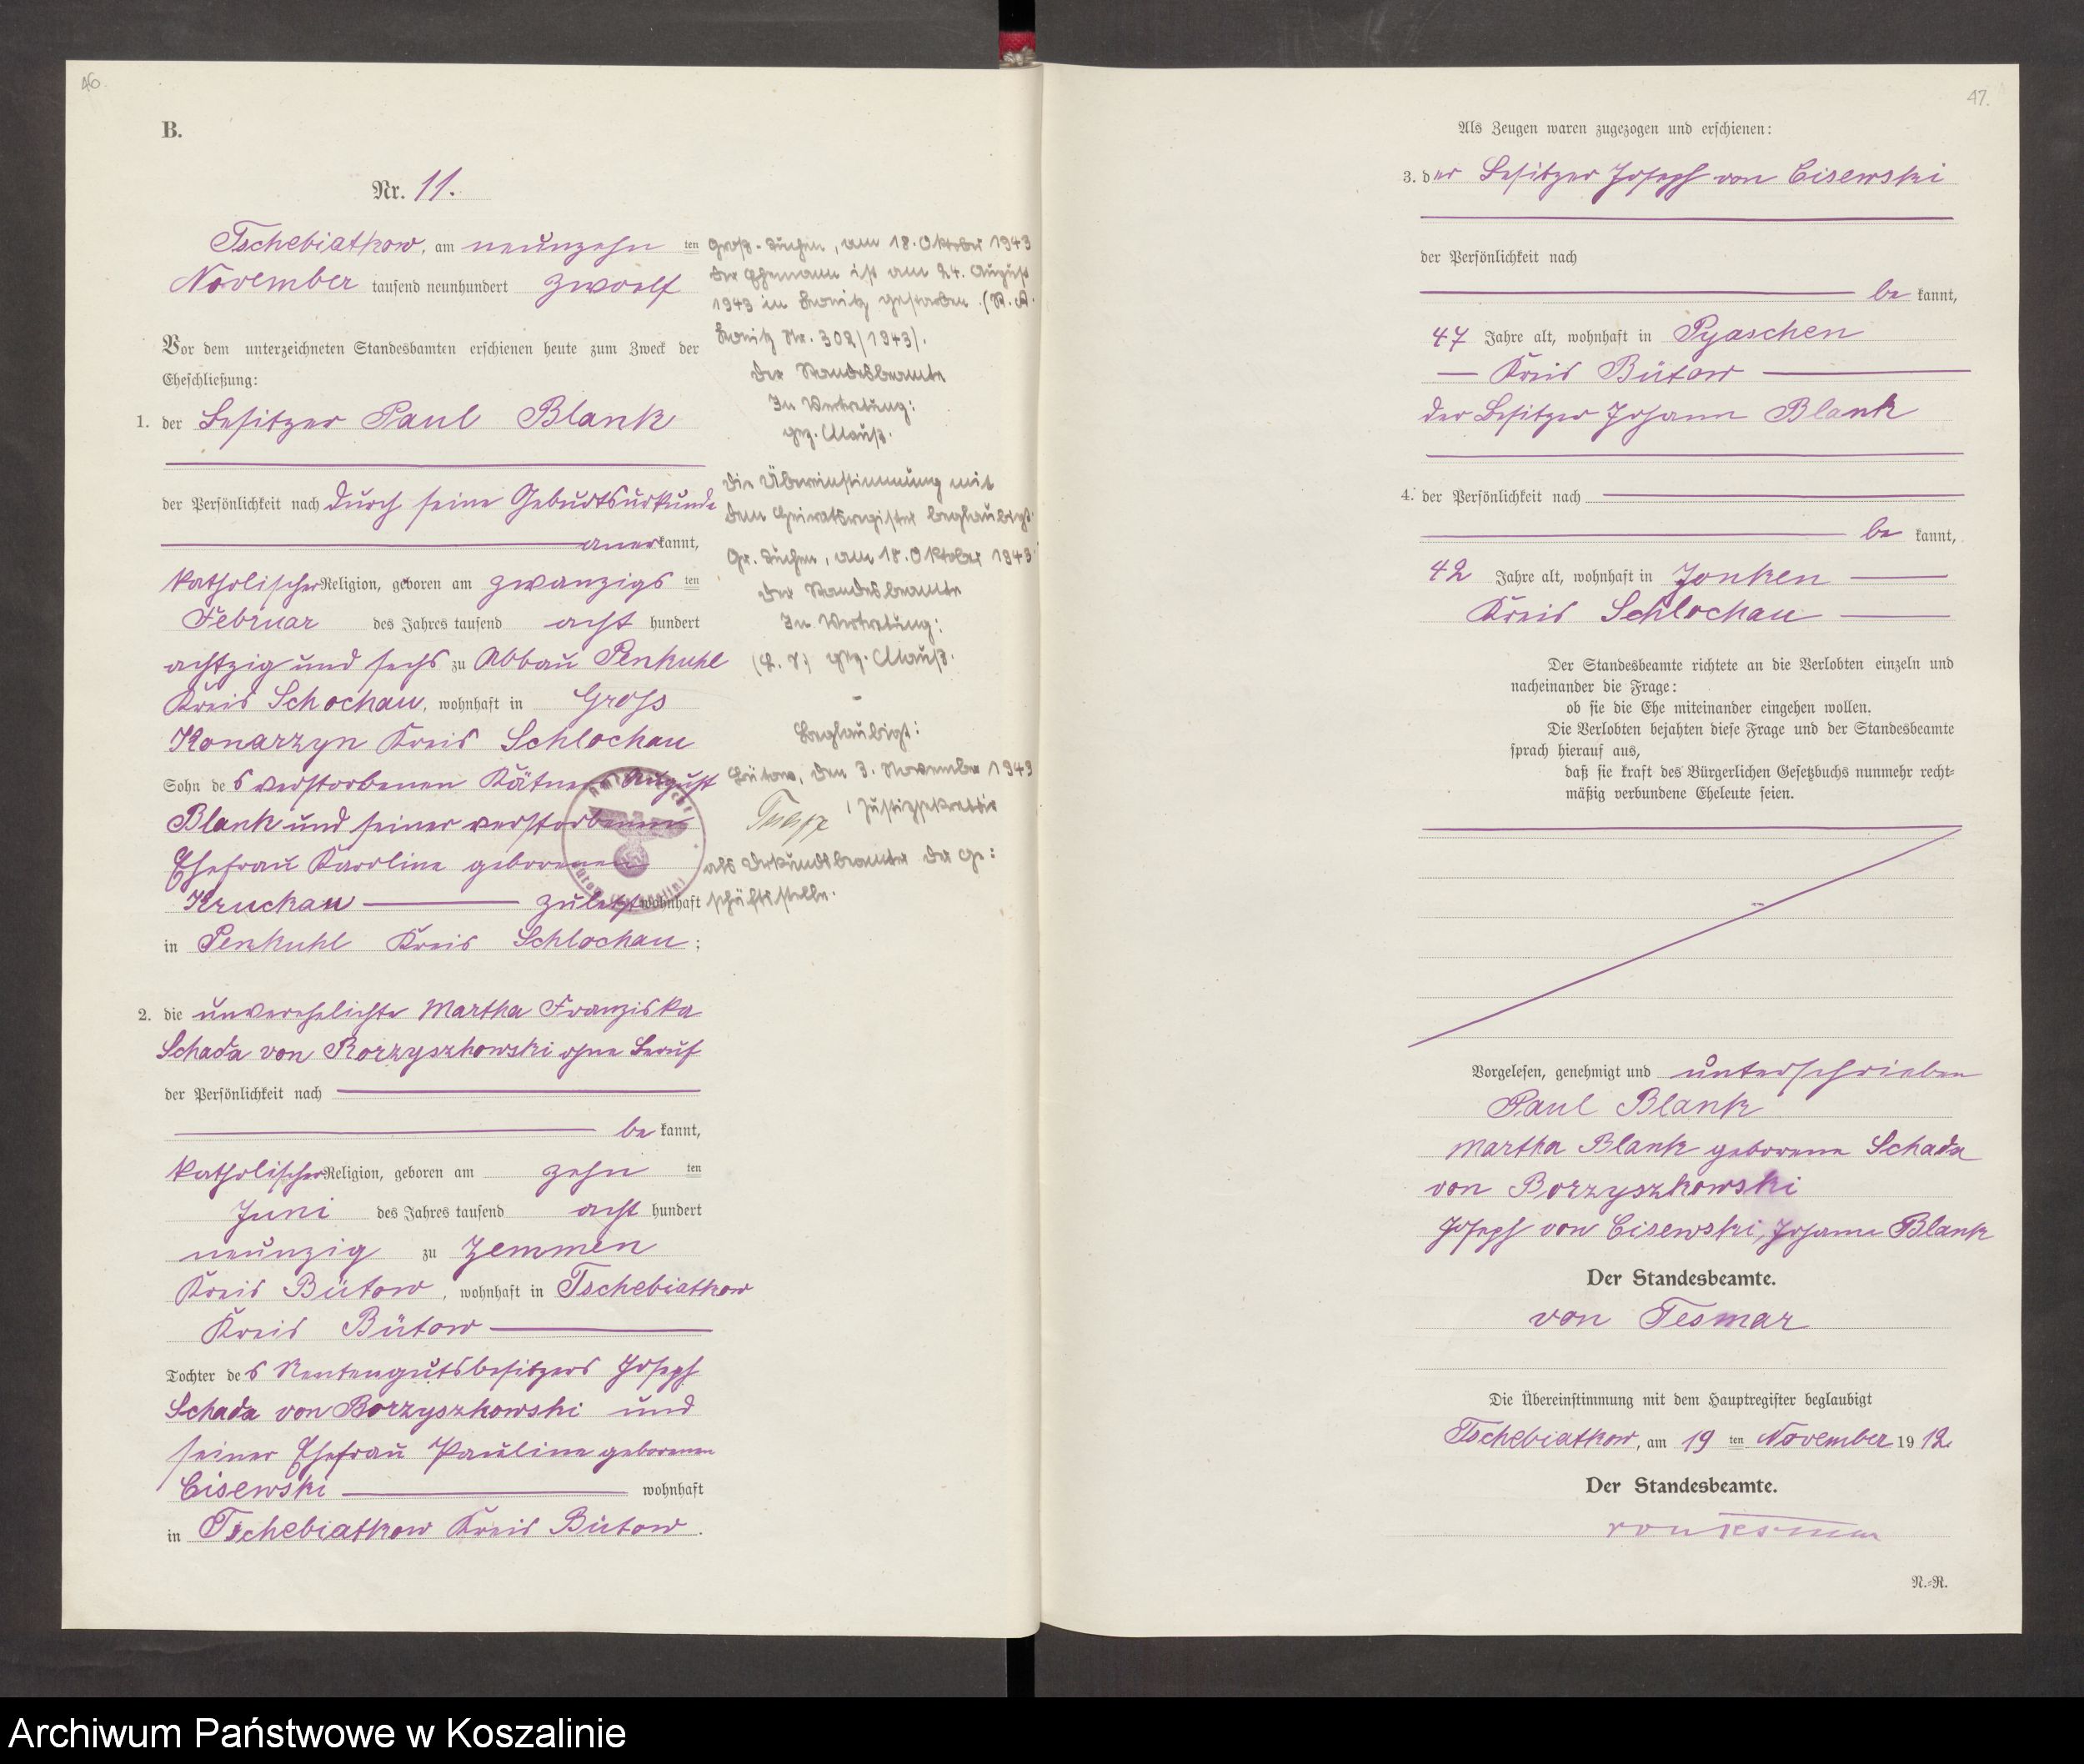 46.
B.
Nr. 11.
Tschebiatkow, am neunzehn ten
November tausend neunhundert zwoelf
Vor dem unterzeichneten Standesbamten erschienen heute zum Zweck der
Eheschließung:
1. der Besitzer Paul Blank
der Persönlichkeit nach durch seine Geburtsurkunde
anerkannt,
katholischer Religion, geboren am zwanzigs ten
Februar des Jahres tausend acht hundert
achtzig und sechs zu Abbau Penkuhl
Kreis Schochau, wohnhaft in Gross
Konarzyn Kreis Schlochau
Sohn des verstorbenen Kätner August
Blank und seiner verstorbenen
Ehefrau Karoline geborenen
Kruckau zuletzt wohnhaft
in Penkuhl Kreis Schlochau;
2. die unverehelichte Martha Franziska
Schada von Borzyszkowski ohne Beruf
der Persönlichkeit nach
be kannt,
katholischer Religion, geboren am zehn ten
Juni des Jahres tausend acht hundert
neunzig zu Zemmen
Kreis Bütow, wohnhaft in Tschebiatkow
Kreis Bütow
Tochter des Rentengutsbesitzers Joseph
Schada von Borzyszkowski und
seiner Ehefrau Pauline geborenen
Cisewski wohnhaft
in Tschebiatkow Kreis Bütow.
Groß-Tuchen, am 18. Oktober 1943
Der Ehemann ist am 24. August
1943 in Konitz gestorben. (St. A.
Konitz Nr. 302/1943).
Der Standesbeamte
In Vertretung:
gez. Clauß.
Die Übereinstimmung mit
dem Heiratsregister beglaubigt.
Gr. Tuchen, am 18. Oktober 1943
Der Standesbeamte
In Vertretung:
(L. S.) gez. Clauß.
Beglaubigt:
Bütow, den 3. November 1943
, Justizsekretär
als Urkundsbeamter der Ge:
schäftsstelle.
47.
Als Zeugen waren zugezogen und erschienen:
3. der Besitzer Joseph von Cisewski
der Persönlichkeit nach
be kannt,
47 Jahre alt, wohnhaft in Pyaschen
Kreis Bütow
der Besitzer Johann Blank
4. der Persönlichkeit nach
be kannt,
42 Jahre alt, wohnhaft in Jonken
Kreis Schlochau
Der Standesbeamte richtete an die Verlobten einzeln und
nacheinander die Frage:
ob sie die Ehe miteinander eingehen wollen.
Die Verlobten bejahten diese Frage und der Standesbeamte
sprach hierauf aus,
daß sie kraft des Bürgerlichen Gesetzbuchs nunmehr recht-
mäßig verbundene Eheleute seien.
Vorgelesen, genehmigt und unterschrieben
Paul Blank
Martha Blank geborene Schada
von Borzyszkowski
Joseph von Cisewski, Johann Blank
Der Standesbeamte.
von Tesmar
Die Übereinstimmung mit dem Hauptregister beglaubigt
Tschebiatkow, am 19 ten November 1912
Der Standesbeamte.
von Tesmar
N.-R.
Archiwum Państwowe w Koszalinie